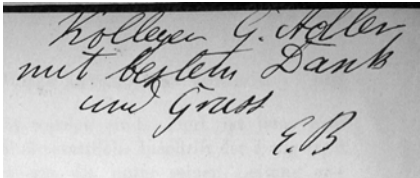 Kollegen G. Adler
mit bestem Dank
und Gruss
E.B